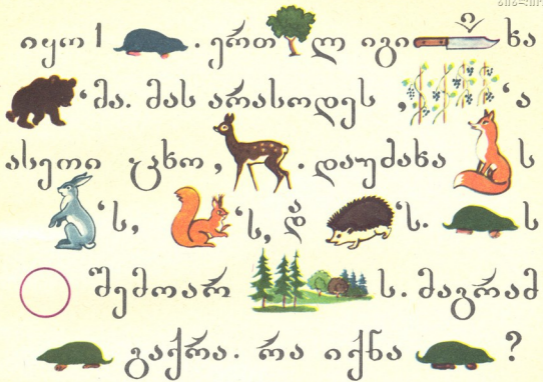 იყო 1 . ერთ ლ იგი ი ხა
‘მა. მას არასოდეს , ‘ა
ასეთი ცხო , . დაუძახა ს
‘ს, ‘ს, და ‘ს. ს
შემოარ ს. მაგრამ
გაქრა. რა იქნა ?